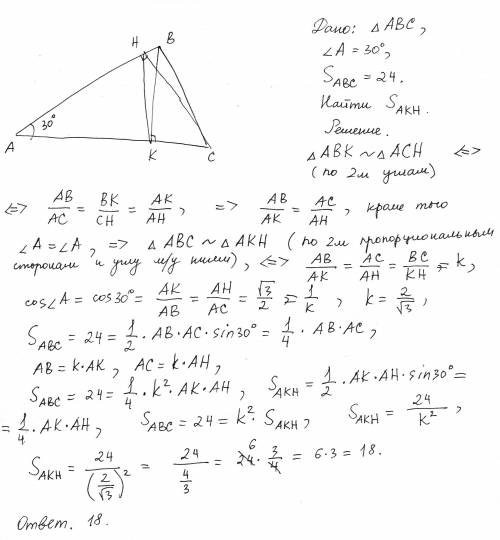 H B
30°
A K C
Дано: △ABC,
∠A = 30°,
S_ABC = 24.
Найти S_AKH.
Решение.
△ABK ~ △ACH <=>
(по 2м углам)
<=> AB/AC = BK/CH = AK/AH, => AB/AK = AC/AH, кроме того
∠A = ∠A, => △ABC ~ △AKH (по 2м пропорциональным
сторонам и углу м/у ними), <=> AB/AK = AC/AH = BC/KH = k,
cos∠A = cos30° = AK/AB = AH/AC = √3/2 = 1/k, k = 2/√3,
S_ABC = 24 = 1/2 · AB · AC · sin30° = 1/4 · AB · AC,
AB = k · AK, AC = k · AH,
S_ABC = 24 = 1/4 · k² · AK · AH, S_AKH = 1/2 · AK · AH · sin30° =
= 1/4 · AK · AH, S_ABC = 24 = k² · S_AKH, S_AKH = 24/k²,
S_AKH = 24/(2/√3)² = 24/(4/3) = 24 6 · 3/4 = 6 · 3 = 18.
Ответ. 18.